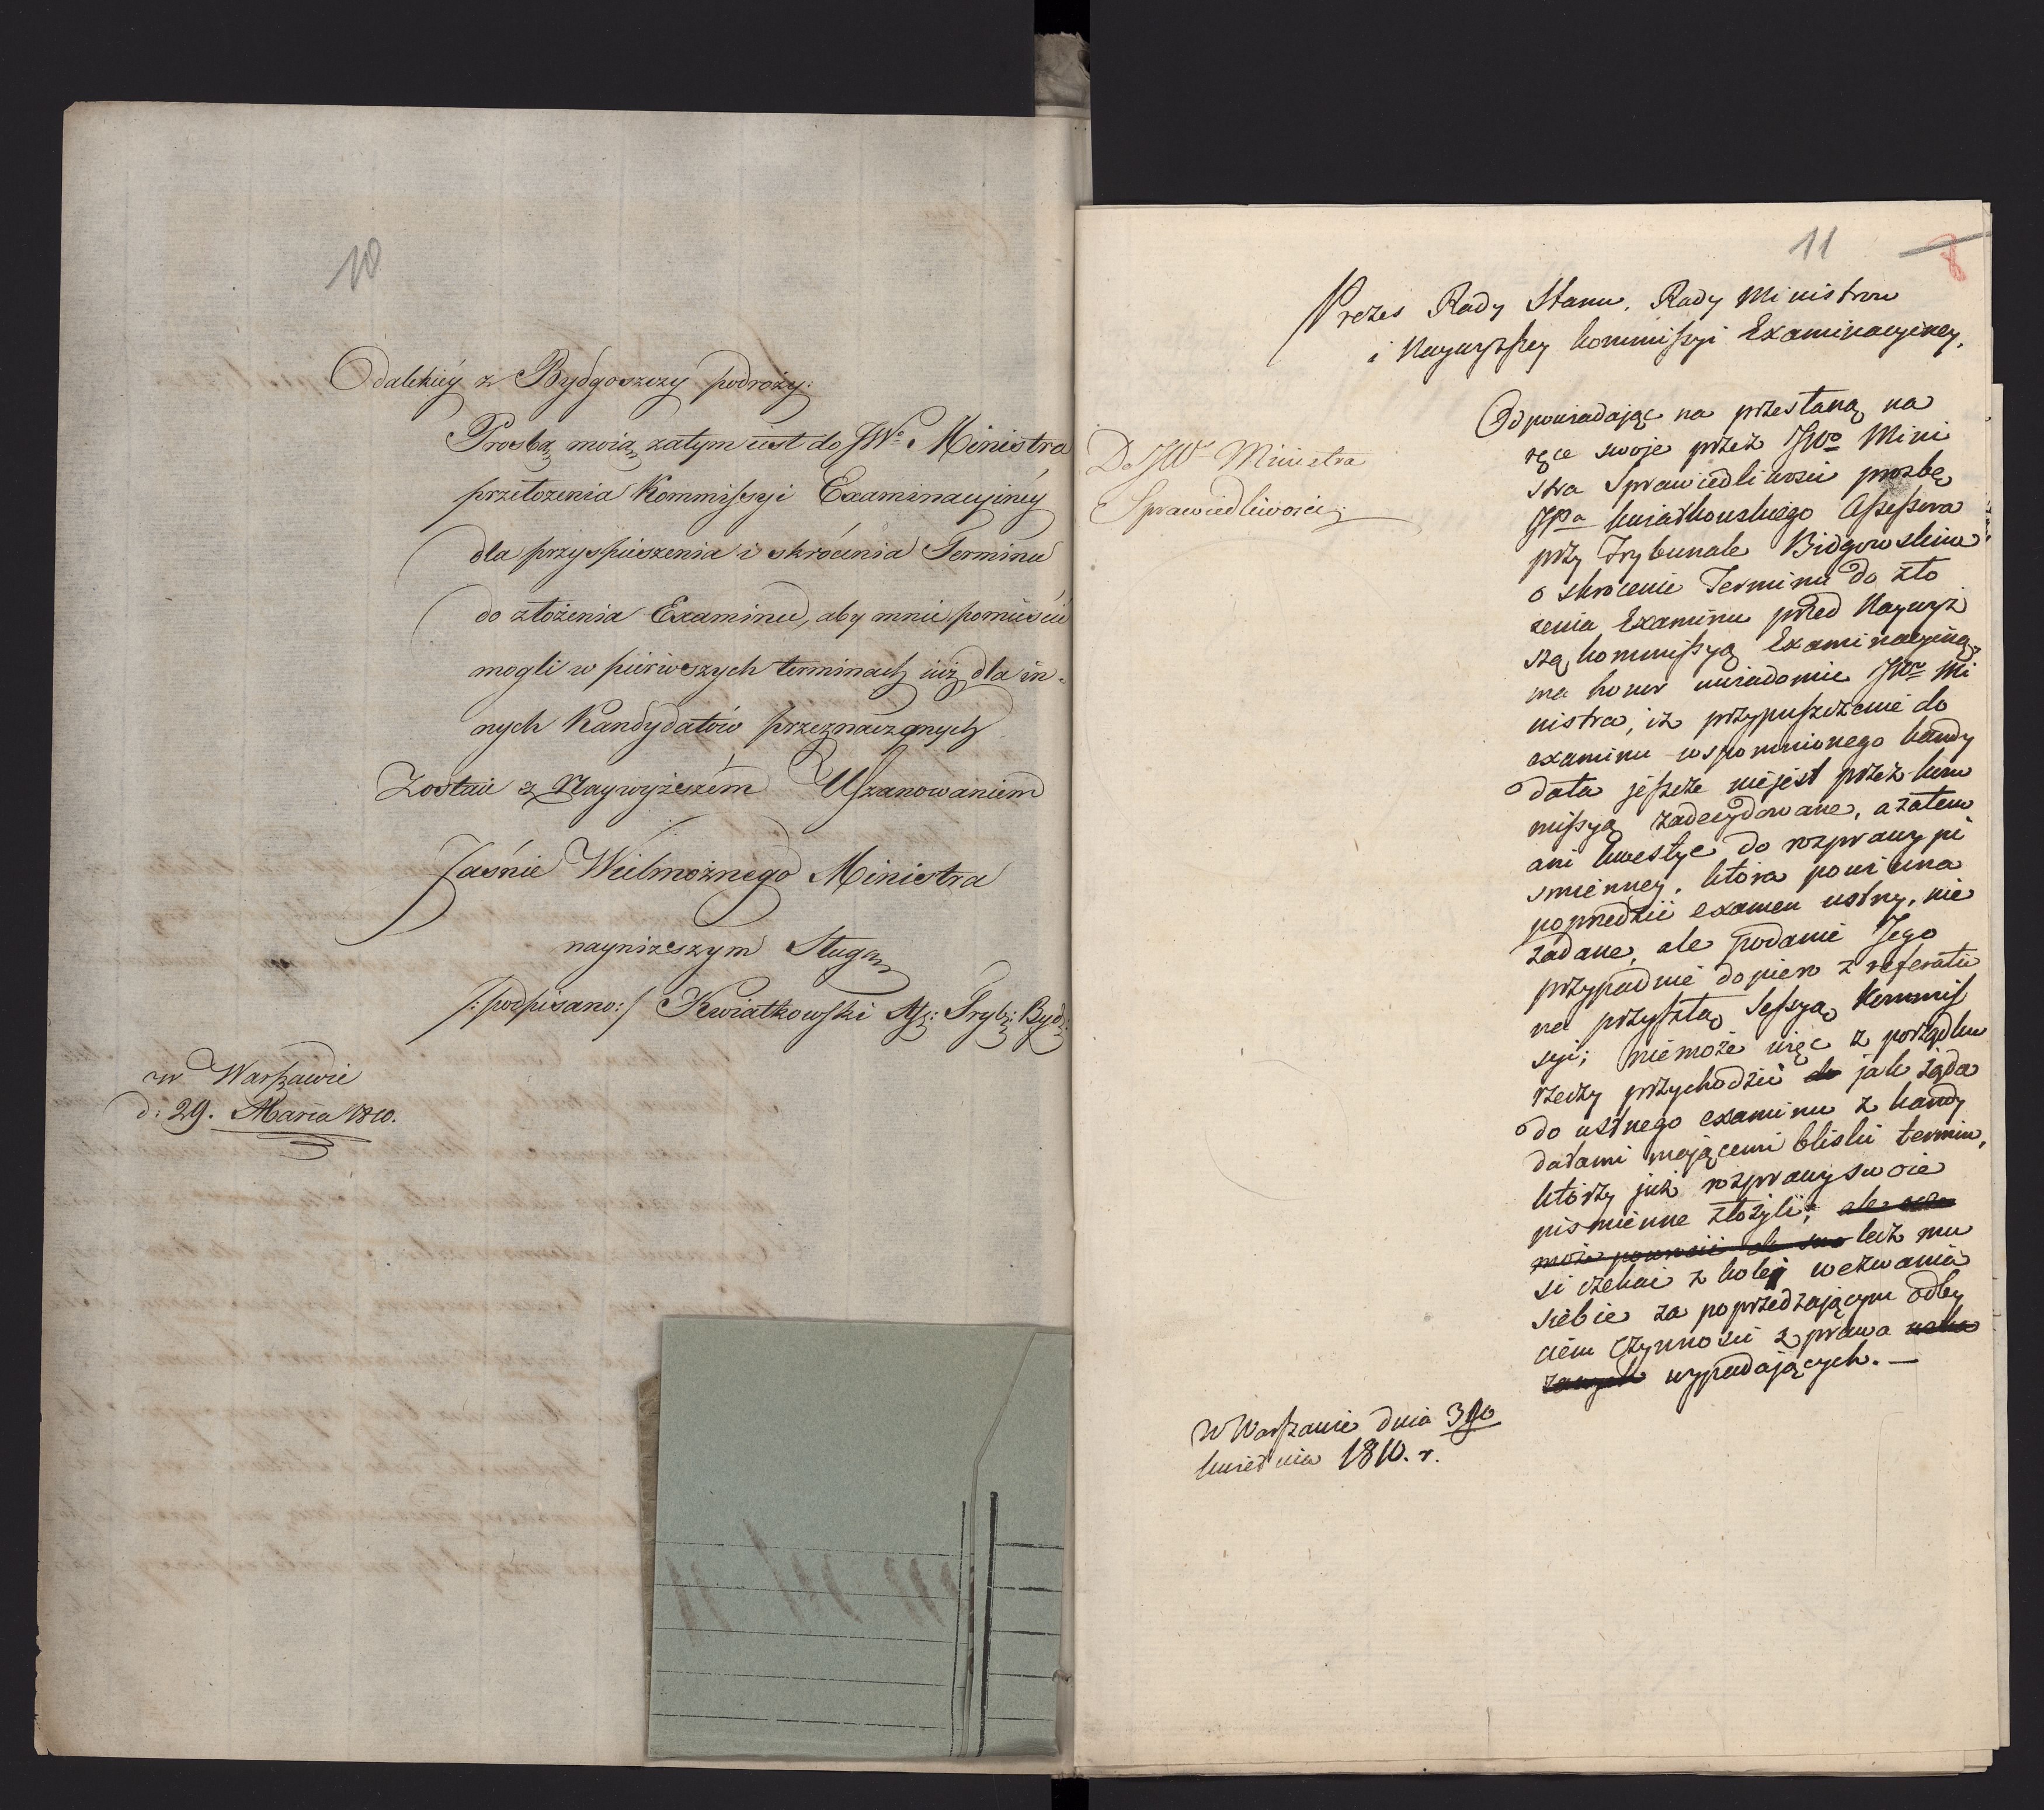 10
Odalekiey z Bydgoszczy podroży:
Prozbą moią zatym iest do JWo Ministra
przełozenia Kommissyi Examinacyiney
dla przyspieszenia i skrócenia Terminu
do złożenia Examinu, aby mnie pomieścić
mogli w pierwszych terminach iuż dla in-
nych Kandydatów przeznaczonych
Zostaie z Naywyższém Uszanowaniem
Jaśnie Wielmożnego Ministra
nayniższym Sługą
/:podpisano:/ Kwiatkowski As: Tryb: Byd:
w Warszawie
d: 29. Marca 1810.
11 8
Prezes Rady Stanu, Rady Ministrow
i Naywyższey Kommissyi Examinacyiney.
Do JWo Ministra
Sprawiedliwosci
Odpowiadając na przesłaną na
ręce swoje przez JWo Mini
stra Sprawiedliwosci prozbę
JPa Kwiatkowskiego Assessora
przy Trybunale Bidgowskim
o skrocenie Terminu do zło
zenia Examinu przed Naywyż
szą Kommissyą Examinacyiną,
ma honor uwiadomic JWo Mi
nistra, iż przypuszczenie do
examinu wspomnionego kandy
data jeszcze niejest przez kom
missyą zadecydowane, a zatem
ani kwestye do rozprawy pi
smienney, ktora powinna
poprzedzić examen ustny, nie
zadane, ale podanie Jego
przypadnie dopiero z referatu
na przyszłą Sessyą Kommis
syi; niemoże więc z porządku
rzeczy przychodzić do jak żąda
do ustnego examinu z kandy
datami mającemi bliski termin,
którzy już rozprawy swoie
pismienne złożyli; ale
może lecz mu
si czekać z kolej wezwania
siebie za poprzedzającym odby
ciem czynności z prawa
wypadających. —
W Warszawie dnia 3go
kwietnia 1810. r.